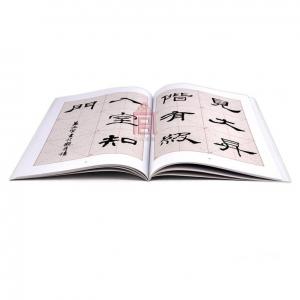 見大升
階有級
入室知
門